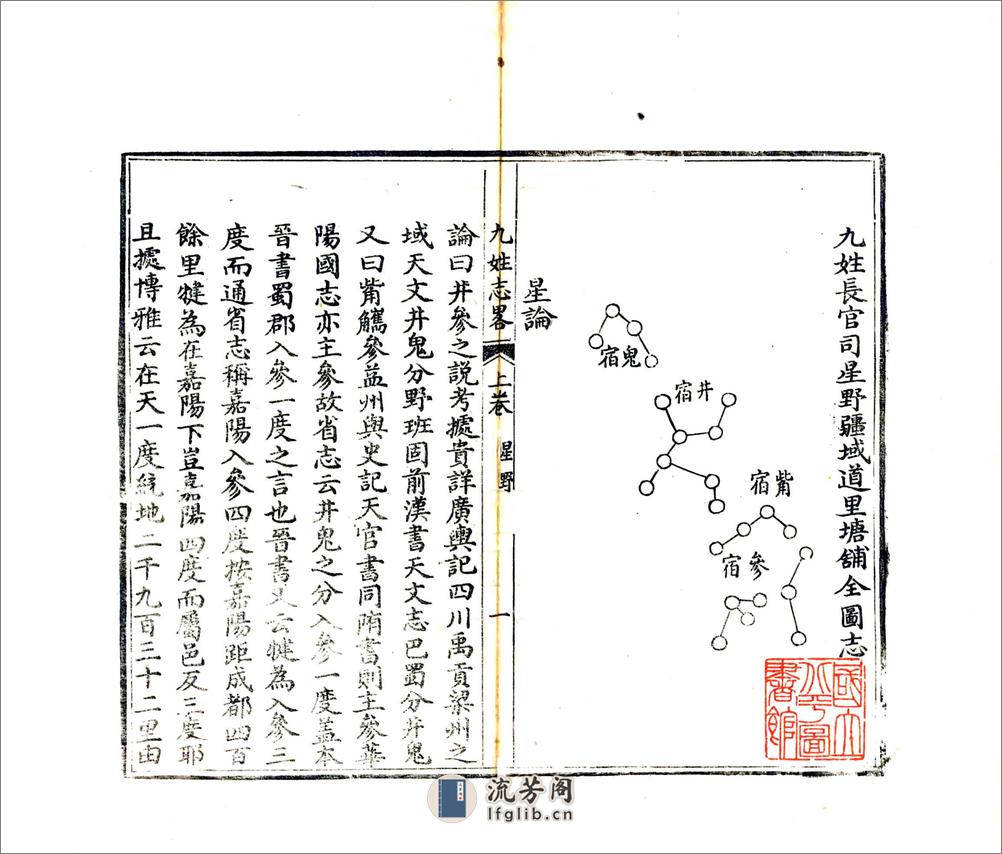 九姓長官司星野疆域道里塘舖全圖志
宿鬼
宿井
宿觜
宿參
國立北平圖書館
星論
九姓志畧 上卷 星野 一
論曰井參之説考據貴詳廣輿記四川禹貢梁州之
域天文井鬼分野班固前漢書天文志巴蜀分井鬼
又曰觜觿參益州與史記天官書同隋書則主參華
陽國志亦主參故省志云井鬼之分入參一度盖本
晉書蜀郡入參一度之言也晉書又云犍為入參三
度而通省志稱嘉陽入參四度按嘉陽距成都四百
餘里犍為在嘉陽下豈嘉陽四度而屬邑反三度耶
且據博雅云在天一度統地二千九百三十二里由
流芳阁
lfglib.cn